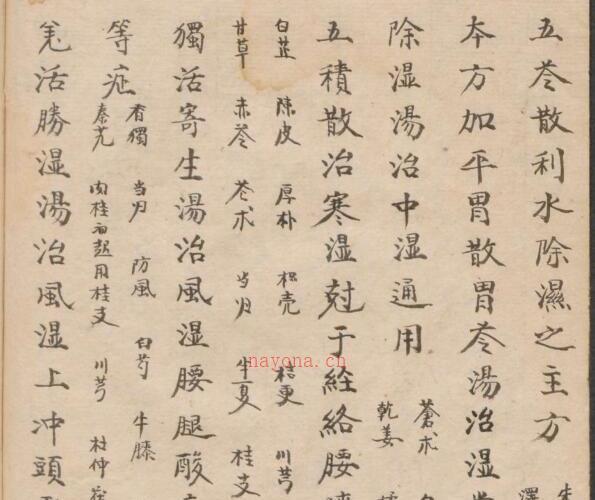 五苓散利水除濕之主方
本方加平胃散胃苓湯治湿
除湿湯治中湿通用
蒼朮
乾姜
五積散治寒湿尅于経絡腰
白芷 陳皮 厚朴 枳壳 桔更 川芎
甘草 赤苓 苍术 当归 生夏 桂支
獨活寄生湯治風湿腰腿酸
等症
香獨 当归 防風 白芍 牛膝
秦艽 肉桂 初起用桂支 川芎 杜仲
羌活勝湿湯治風湿上冲頭
nayona.cn